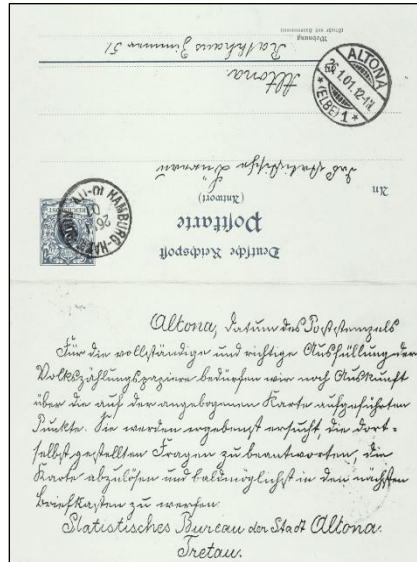 Deutsche Reichspost
Postkarte
(Antwort)
An
das statistische Bureau
Altona.
Rathhaus Zimmer 51
Wohnung
(Straße und Hausnummer)
ALTONA
26.1.01.12-1N
*(ELBE)1*
HAMBURG
26
01
Altona, Datum des Poststempels
Für die vollständige und richtige Ausfüllung der
Volkszählungspapiere bedürfen wir noch Auskunft
über die auf der angebogenen Karte aufgeführten
Punkte. Sie werden ergebenst ersucht, die dort-
selbst gestellten Fragen zu beantworten, die
Karte abzulösen und baldmöglichst in den nächsten
Briefkasten zu werfen.
Statistisches Bureau der Stadt Altona.
Tretau.